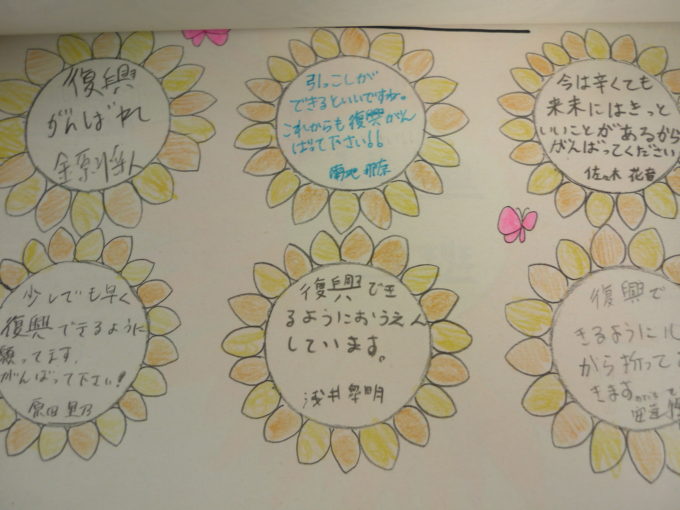 復興
がんばれ
引っこしが
できるといいですね。
これからも復興がん
ばって下さい!!
菊地 那奈
今は辛くても
来未にはきっと
いいことがあるから
がんばってください
佐々木 花音
少しでも早く
復興できるように
願ってます。
がんばって下さい!
原田 里乃
復興でき
るようにおうえん
しています。
浅井 明
復興で
きるように心
から祈って
きます